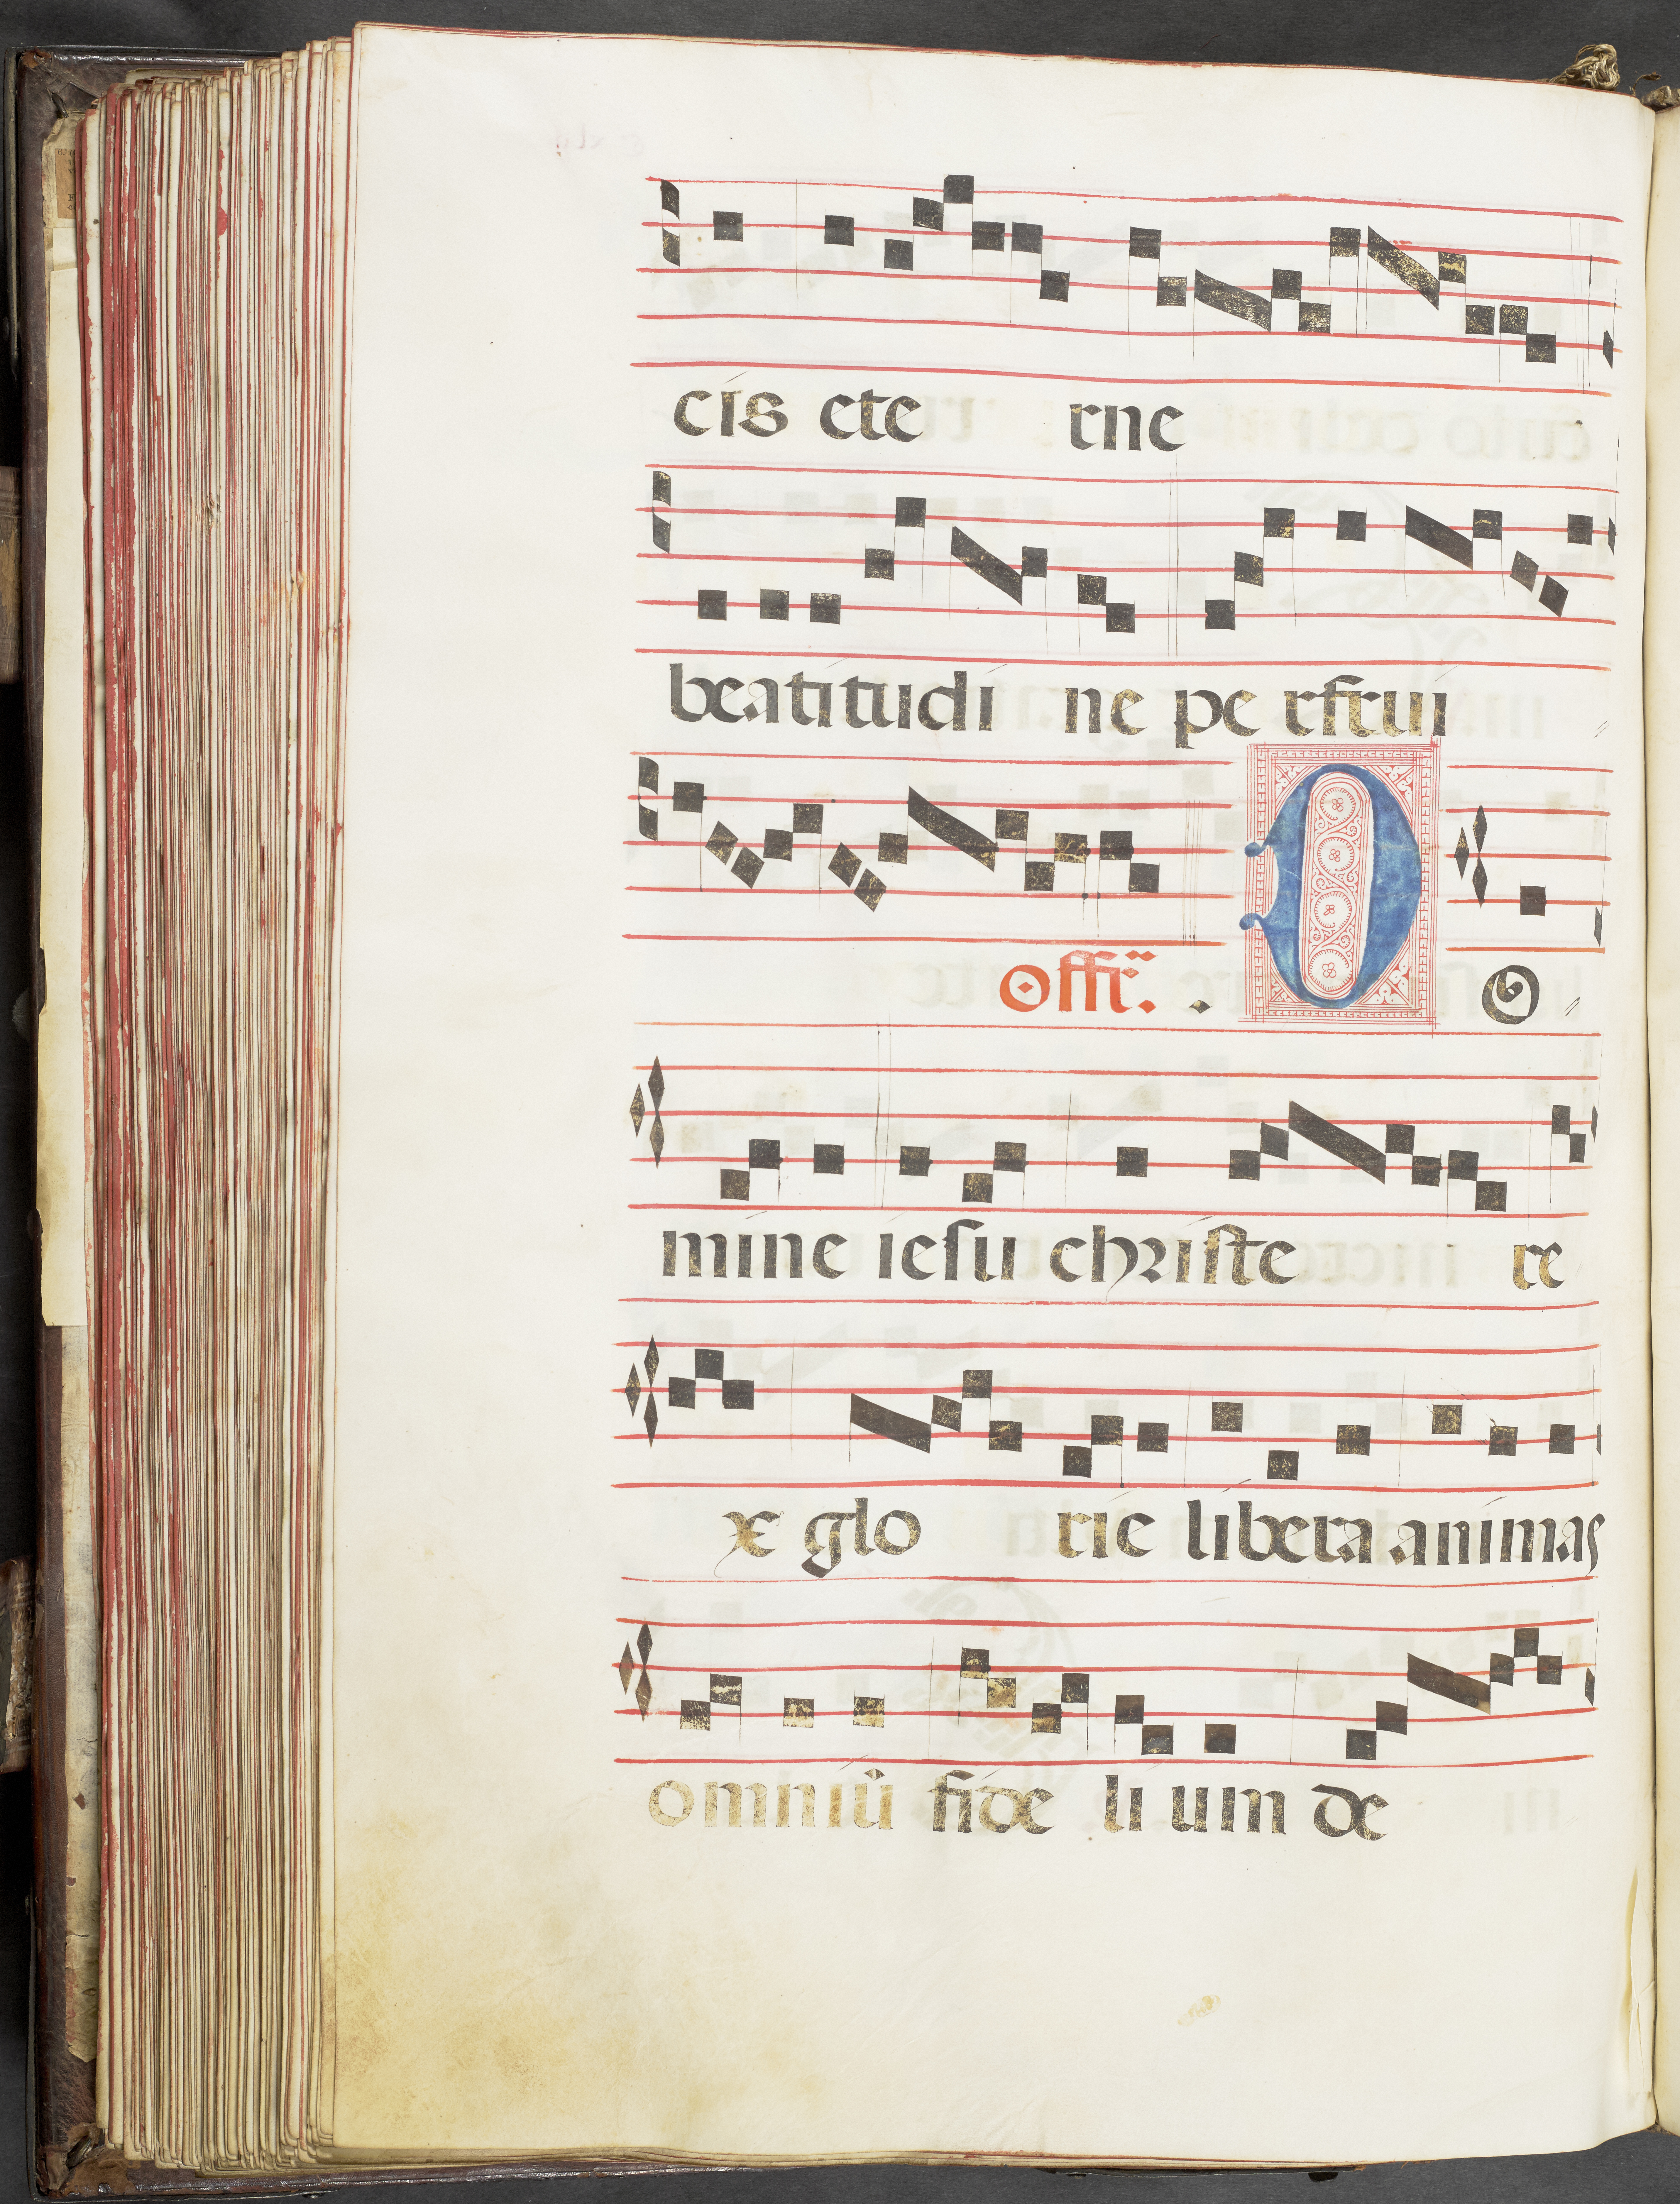 cis ete rne
beatitudi ne pe rfrui
offr̃. . D O
mine iesu christe re
x glo rie libera animas
omniũ fide li um de